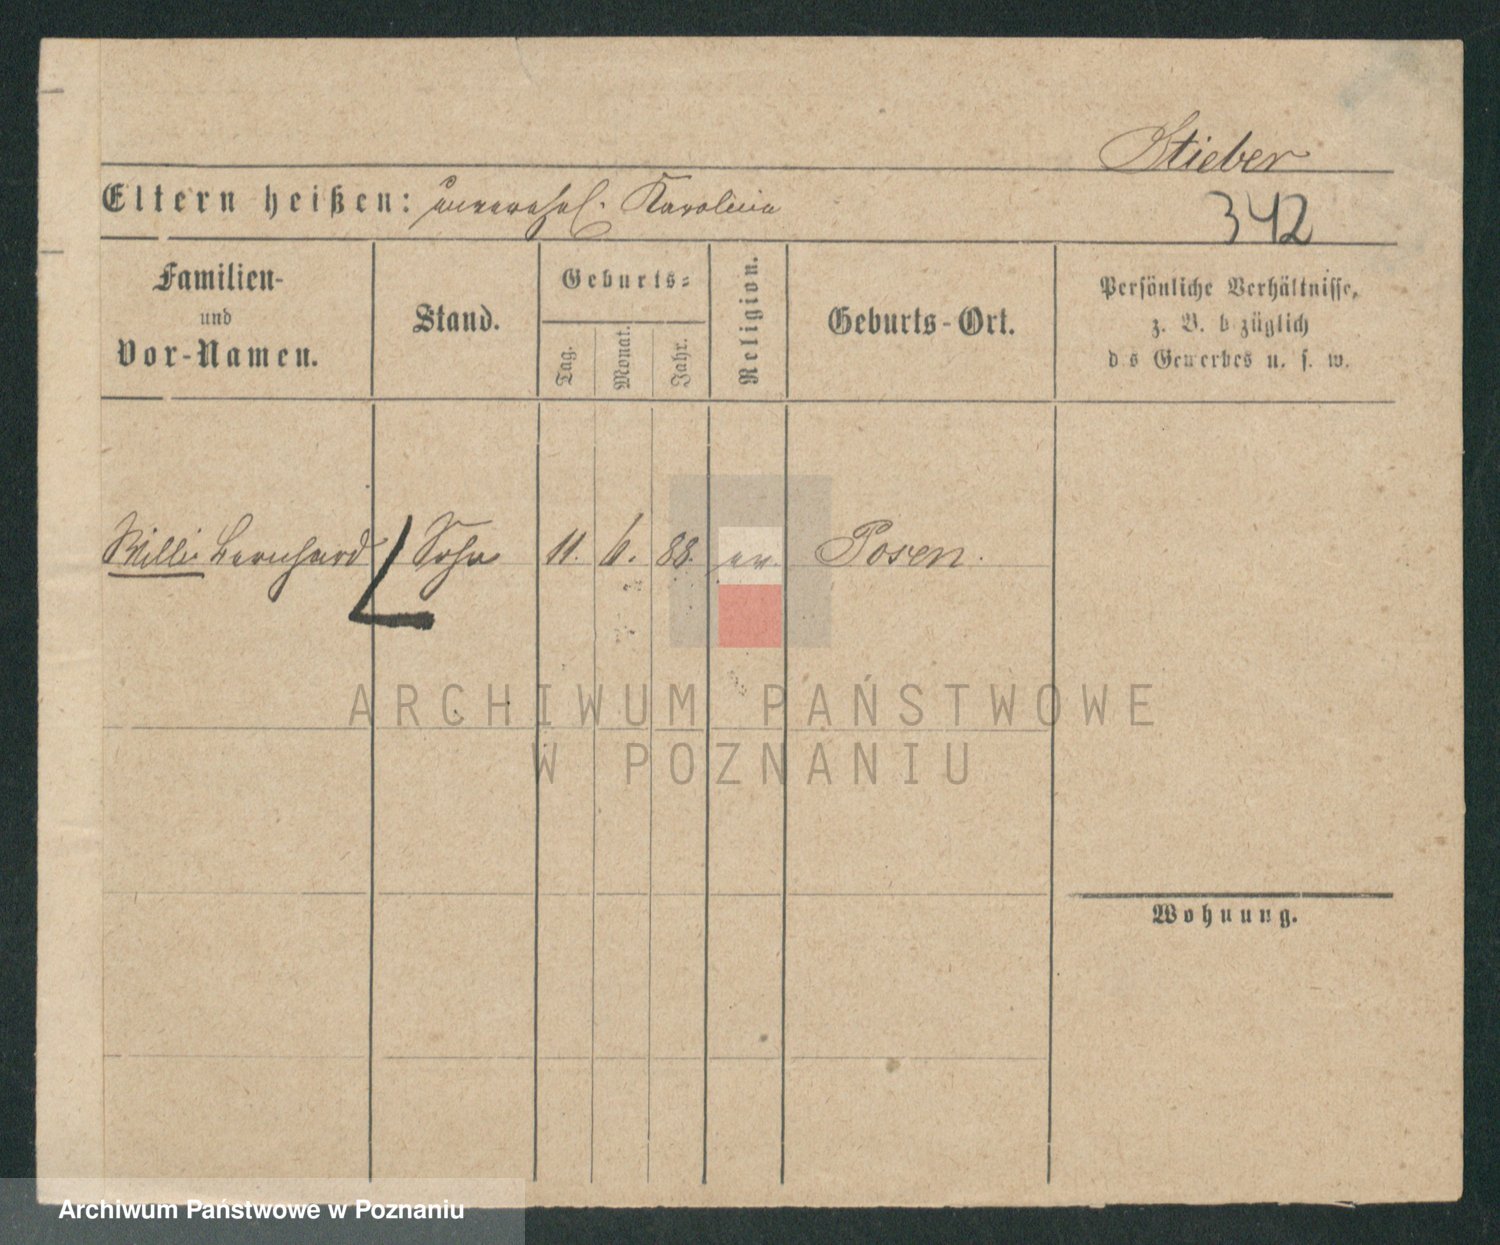 Stieber
Eltern heißen: unverehel. Karolina
342
Familien-
und
Vor-Namen.
Stand.
Geburts-
Tag.
Monat.
Jahr.
Religion.
Geburts-Ort.
Persönliche Verhältnisse,
z. B. b züglich
d s Gewerbes u. s. w.
Willi Bernhard Sohn 11. 6. 88. ev. Posen.
ARCHIWUM PAŃSTWOWE
W POZNANIU
Wohnung.
Archiwum Państwowe w Poznaniu